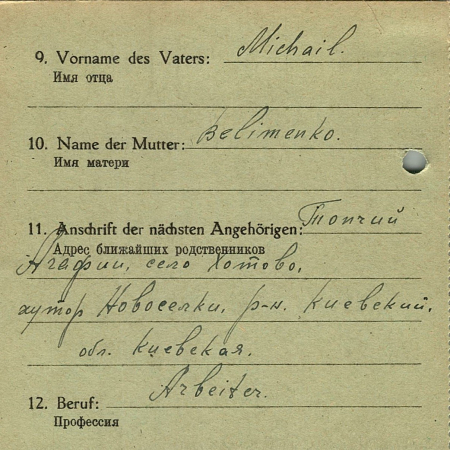 9. Vorname des Vaters: Michail.
Имя отца
10. Name der Mutter: Belimenko.
Имя матери
11. Anschrift der nächsten Angehörigen: Топчий
Адрес ближайших родственников
Агафии, село Хотово,
хутор Новоселки, р-н. Киевский,
обл. Киевская.
12. Beruf: Arbeiter.
Профессия